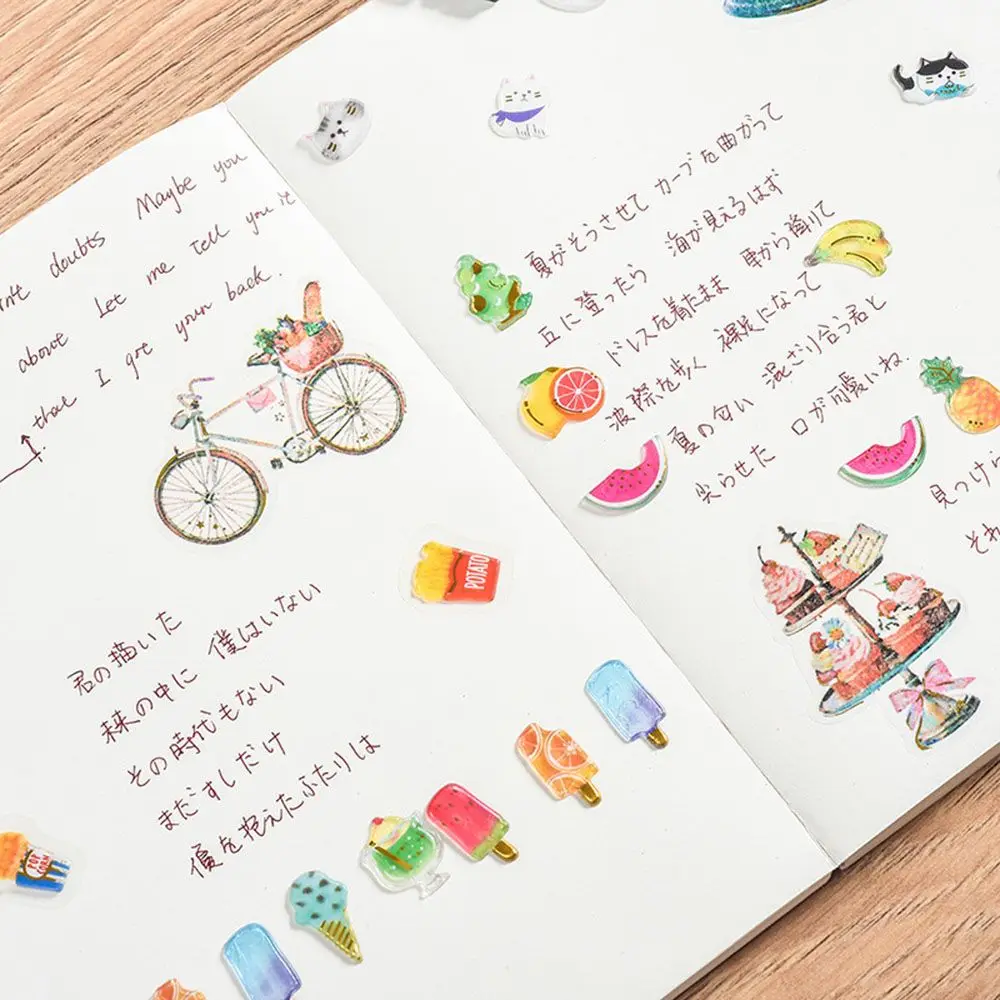 Maybe you
doubts
above Let me tell you it
that I got your back.
POTATO
君の描いた
未来の中に 僕はいない
その時代もない
まだすしだけ
優を抱えたふたりは
POP CORN
夏がそうさせて カーブを曲がって
丘に登ったら 海が見えるはず
ドレスを着たまま 車から降りて
波際を歩く 裸足になって
夏の匂い 混ざり合う君と
尖らせた 口が可愛いね.
見つけら
それ